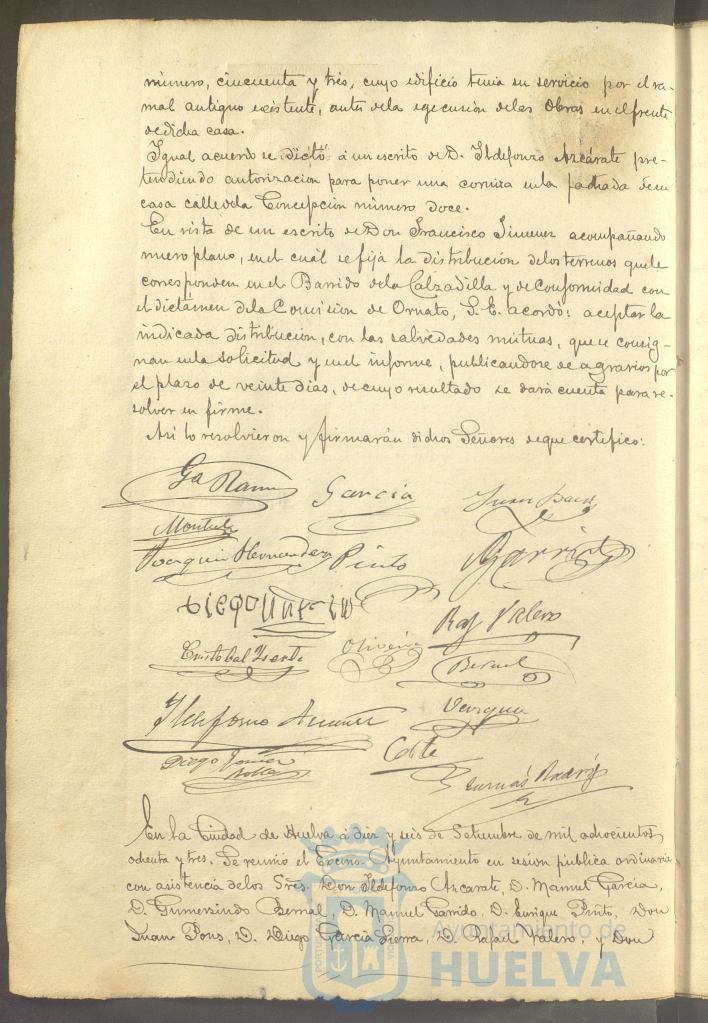 número, cincuenta y tres, cuyo edificio tenia su servicio por el ra-
mal antiguo existente, antes dela egecusión delas Obras en el frente
de dicha casa.
Igual acuerdo se dictó á un escrito de D. Ildefonzo Azcárate pre-
tendiendo autorizacion para poner una corniza enla fachada desu
casa calle dela Concepción número doce.
En vista de un escrito de Don Francisco Jimenez acompañando
nuevo plano, en el cuál se fija la distribución delos terrenos que le
corresponden en el Barrido dela Calzadilla y de Conformidad con
el dictámen dela Comision de Ornato, S. E. acordó: aceptar la
indicada distribución, con las salvedades mutuas, que se consig-
nan enla solicitud y en el informe, publicandose de agravios por
el plazo de veinte dias, de cuyo resultado se dará cuenta para re-
solver en firme.
Asi lo resolvieron y firmarán dichos Señores de que certifico:
Garcia
Joaquin Hernandez Pinto
Garrido
Raf Valero
Oliveira
Bernal
Vazquez
En la Ciudad de Huelva á diez y seis de Setiembre de mil ochocientos
ochenta y tres. Se reunió el Excmo. Ayuntamiento en sesion pública ordinaria
con asistencia delos Sres. Don Ildefonzo Azcarate, D. Manuel García,
D. Gumersindo Bernal, D. Manuel Garrido, D. Enrique Pinto, Don
Juan Pons, D. Diego García Sierra, D. Rafael Valero, y Don
Ayuntamiento de
HUELVA